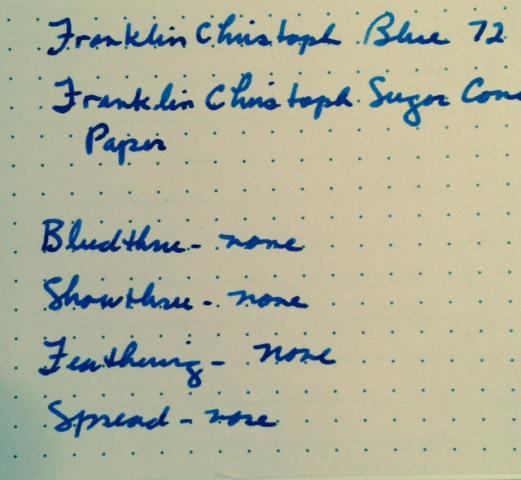 Franklin Christoph Blue 72
Franklin Christoph Sugar Cane
Paper
Bleedthru - none
Showthru - none
Feathering - none
Spread - none